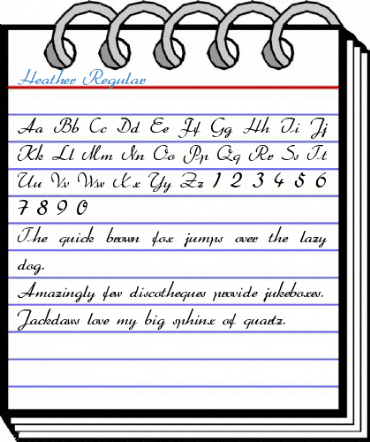 Heather Regular
Aa Bb Cc Dd Ee Ff Gg Hh Ii Jj
Kk Ll Mm Nn Oo Pp Qq Rr Ss Tt
Uu Vv Ww Xx Yy Zz 1 2 3 4 5 6
7 8 9 0
The quick brown fox jumps over the lazy
dog.
Amazingly few discotheques provide jukeboxes.
Jackdaws love my big sphinx of quartz.